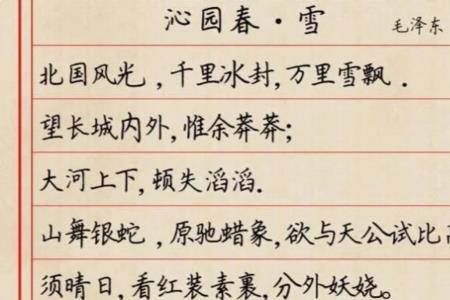 沁园春·雪
毛泽东
北国风光,千里冰封,万里雪飘.
望长城内外,惟余莽莽;
大河上下,顿失滔滔.
山舞银蛇,原驰蜡象,欲与天公试比
须晴日,看红装素裹,分外妖娆。